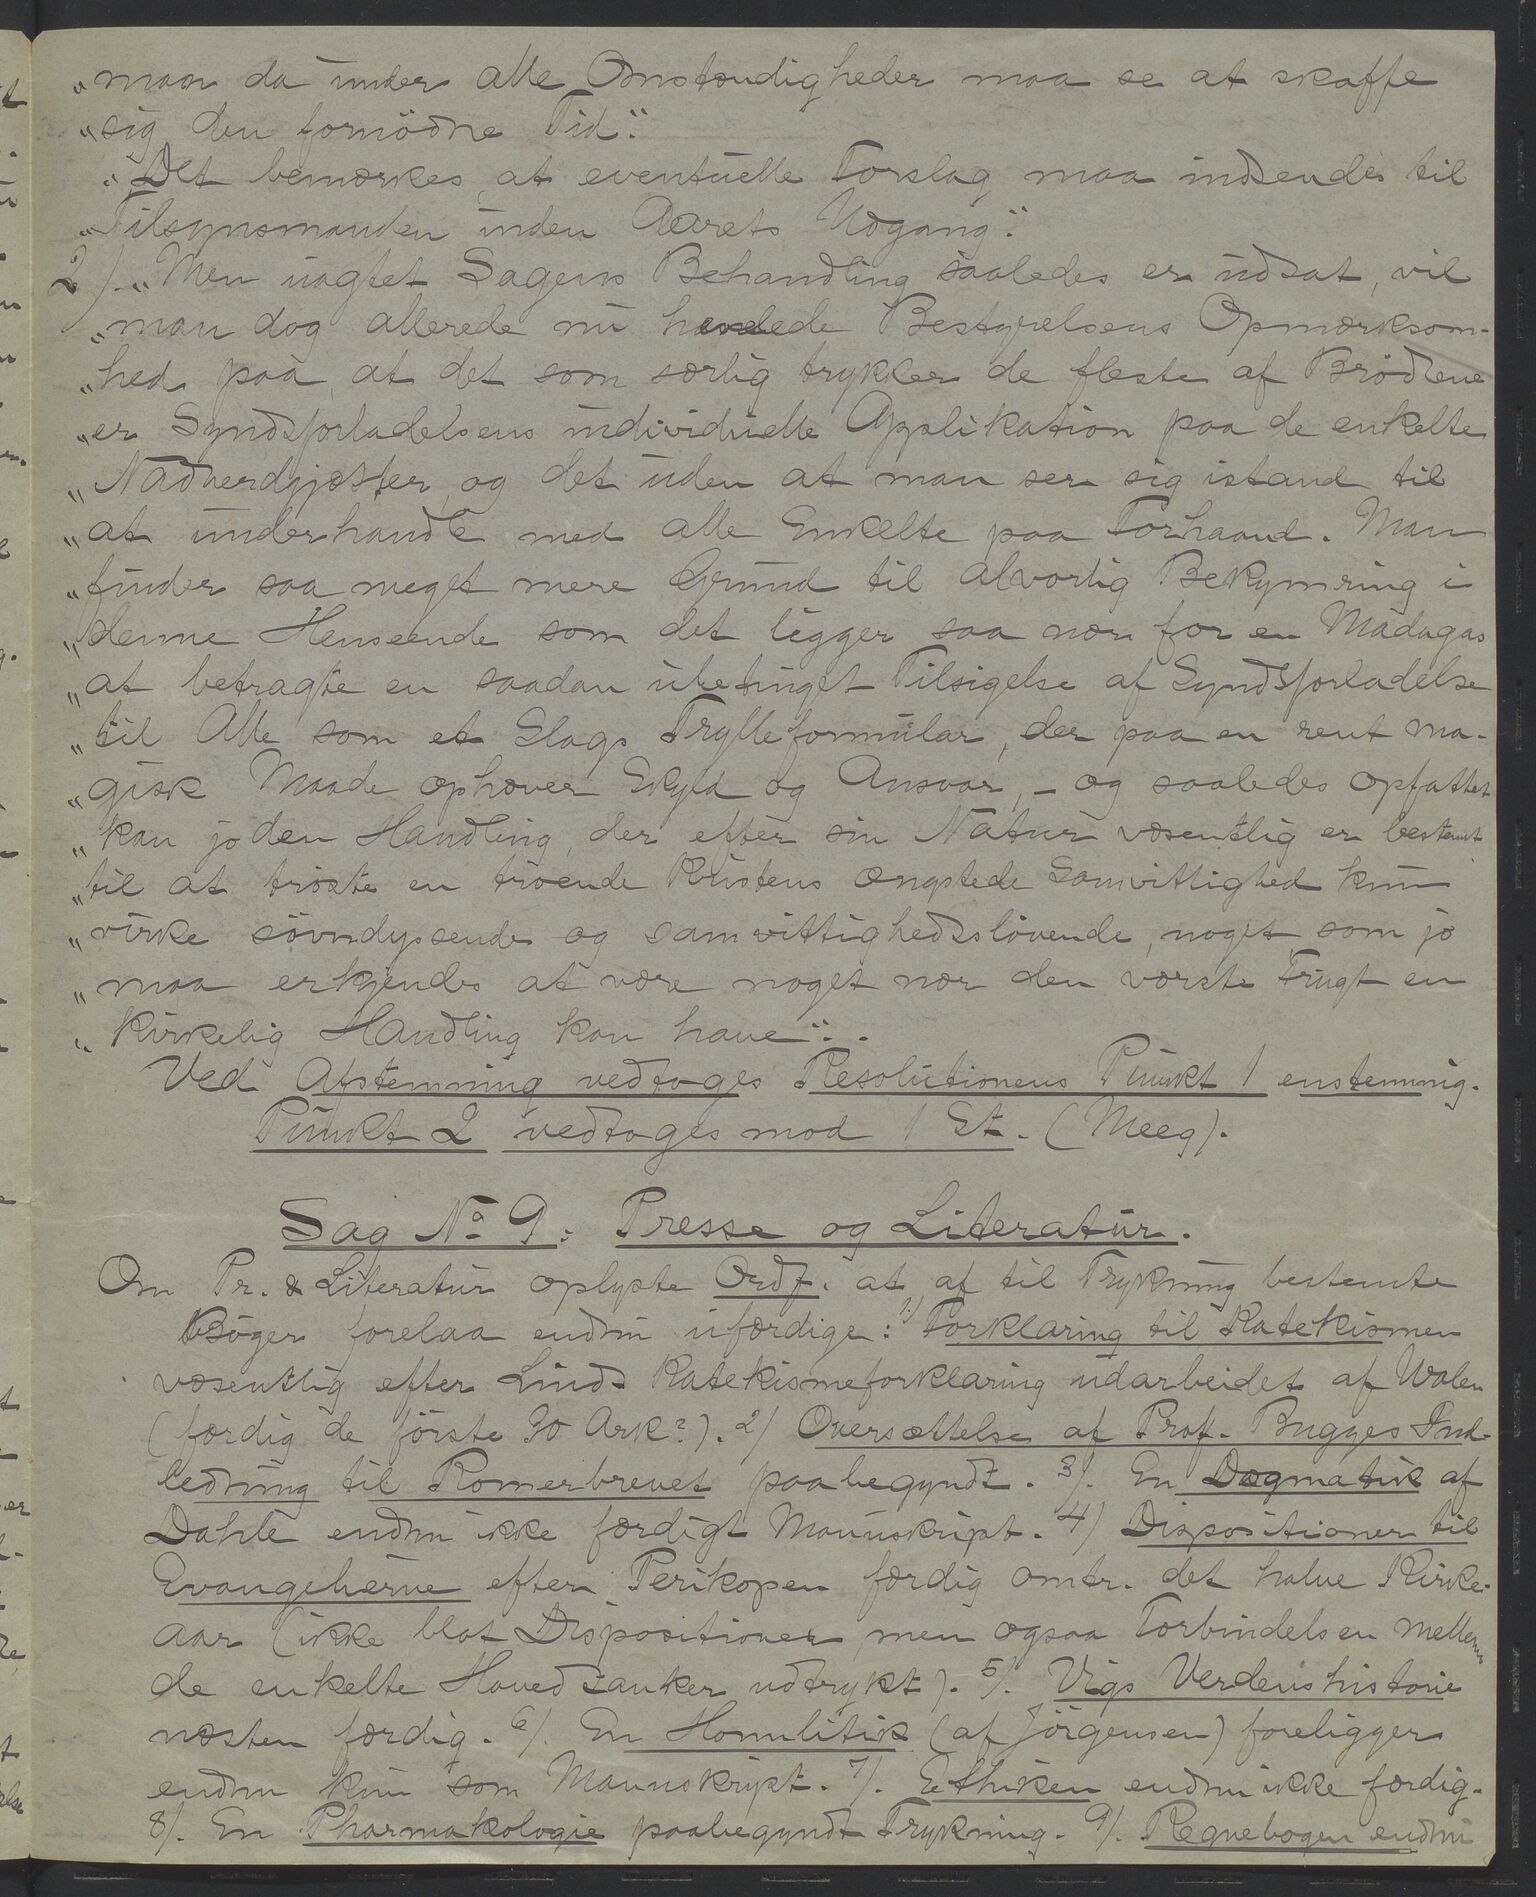 "man da under alle Omstændigheder maa se at skaffe
"sig den fornödne Tid".
"Det bemærkes at eventuelle Forslag maa indsendes til
"Tilsynsmanden inden Aarets Udgang".
2). "Men uagtet Sagens Behandling saaledes er udsat, vil
"man dog allerede nu henlede Bestyrelsens Opmærksom-
"hed paa, at det som særlig trykker de fleste af Brödrene
"er Syndsforladelsens individuelle Applikation paa de enkelte
"Nadverdgjæster, og det uden at man ser sig istand til
"at underhandle med alle Enkelte paa Forhaand. Man
"finder saa meget mere Grund til alvorlig Bekymring i
"denne Henseende som det ligger saa nær for en Madagas
"at betragte en saadan ubetinget Tilsigelse af Syndsforladelse
"til Alle som et Slags Trylleformular, der paa en rent ma-
"gisk Maade ophæver Skyld og Ansvar, - og saaledes opfattet
"kan jo den Handling, der efter sin Natur væsentlig er bestemt
"til at tröste en troende Kristens ængstede Samvittighed kun
"virke sövndyssende og samvittighedslövende, noget som jo
"maa erkjendes at være noget nær den værste Frugt en
"Kirkelig Handling kan have".
Ved Afstemning vedtoges Resolutionens Punkt 1 enstemmig.
Punkt 2 vedtoges mod 1 St. (Meeg).
Sag No 9: Presse og Literatur.
Om Pr. & Literatur oplyste Ordf. at af til Trykning bestemte
Böger forelaa endnu ufærdige: 1) Forklaring til Katekismen
væsentlig efter Linds Katekismeforklaring udarbeidet af Walen
(færdig de förste 30 Ark?). 2) Oversættelse af Prof. Bugges Ind-
ledning til Romerbrevet paabegyndt. 3). En Dogmatik af
Dahle endnu ikke færdigt Manuskript. 4) Dispositioner til
Evangelierne efter Perikopen færdig omtr. det halve Kirke-
aar (ikke blot Dispositioner, men ogsaa Forbindelsen mellem
de enkelte Hovedtanker udtrykt). 5). Vigs Verdenshistorie
næsten færdig. 6). En Homilitik (af Jörgensen) foreligger
endnu kun som Manuskript. 7). Ethiken endnu ikke færdig.
8). En Pharmakologie paabegyndt Trykning. 9). Regnebogen endnu